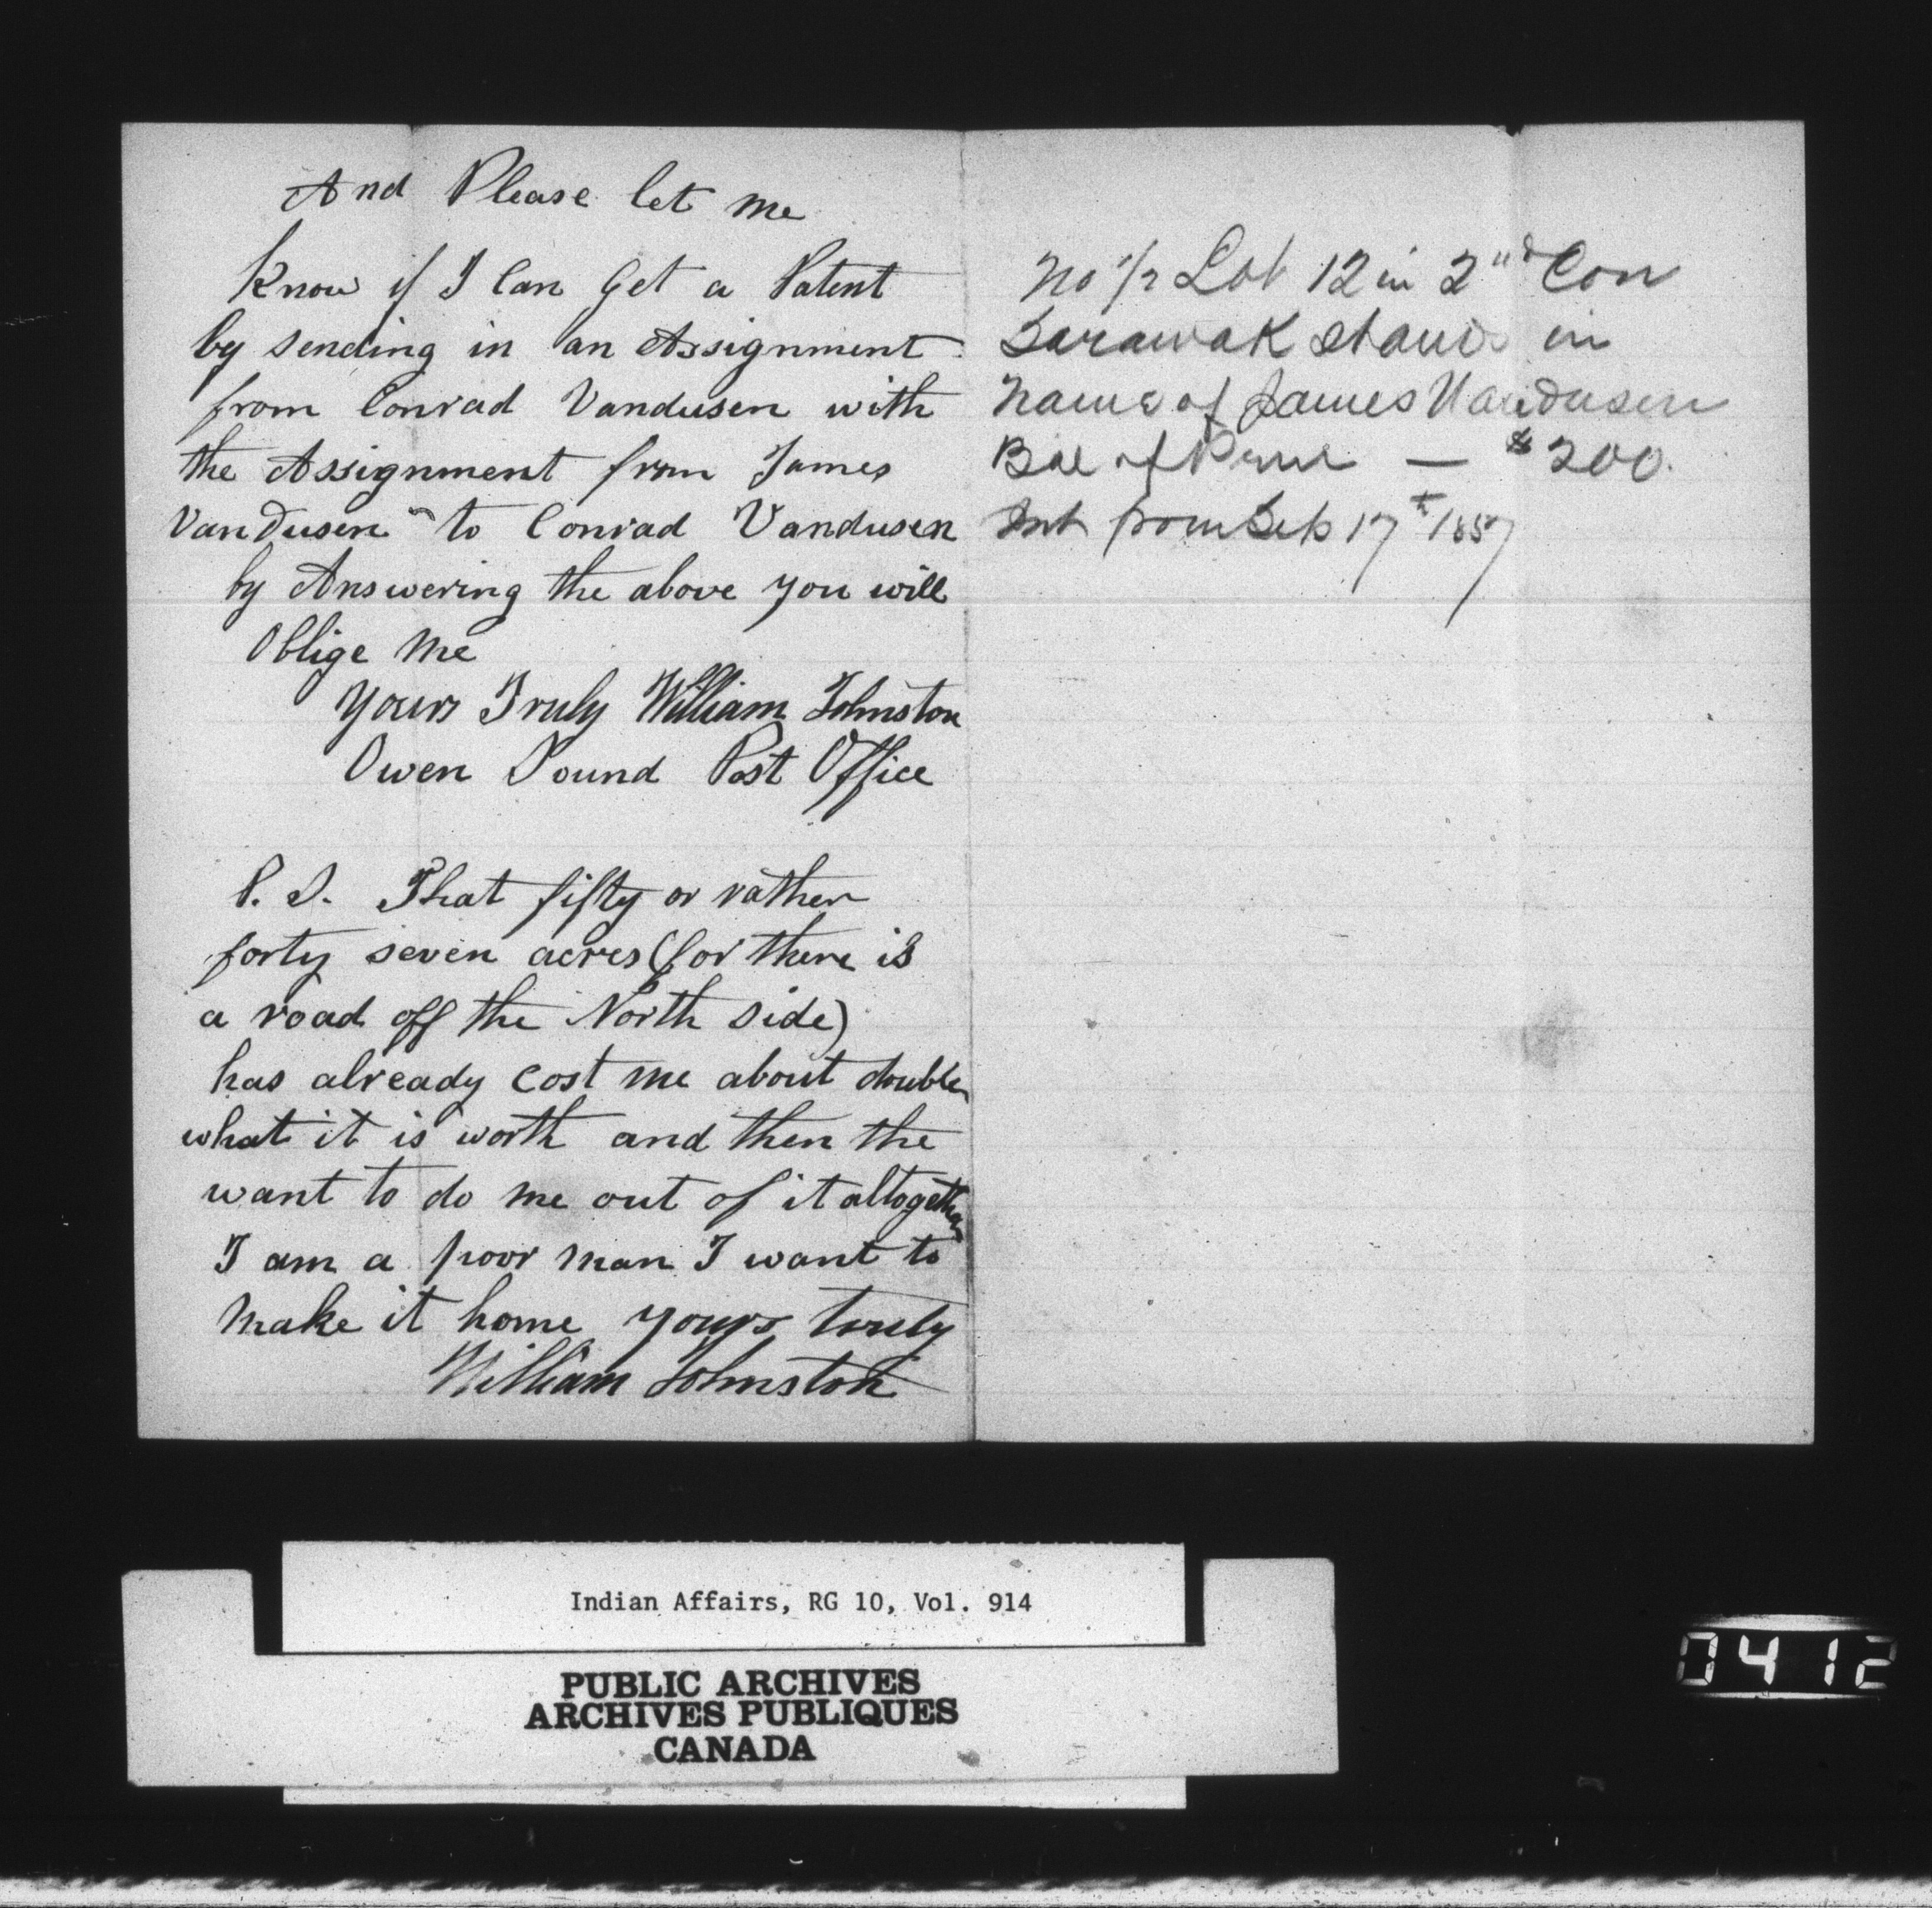 And Please let me
Know if I Can Get a Patent
by sending in an Assignment
from Conrad Vandusen with
the Assignment from James
VanDusen to Conrad Vandusen
by Answering the above you will
Oblige Me
Yours Truly William Johnston
Owen Sound Post Office
P. S. That fifty or rather
forty seven acres (for there is
a road off the North side)
has already cost me about double
what it is worth and then the
want to do me out of it altogether
I am a poor man I want to
make it home yours truly
William Johnston
No 1/2 Lot 12 in 2nd Con
Sarawak stands in
name of James Vandusen
Bal of — $200.
Int from Sep 17th 1857
Indian Affairs, RG 10, Vol. 914
PUBLIC ARCHIVES
ARCHIVES PUBLIQUES
CANADA
0412